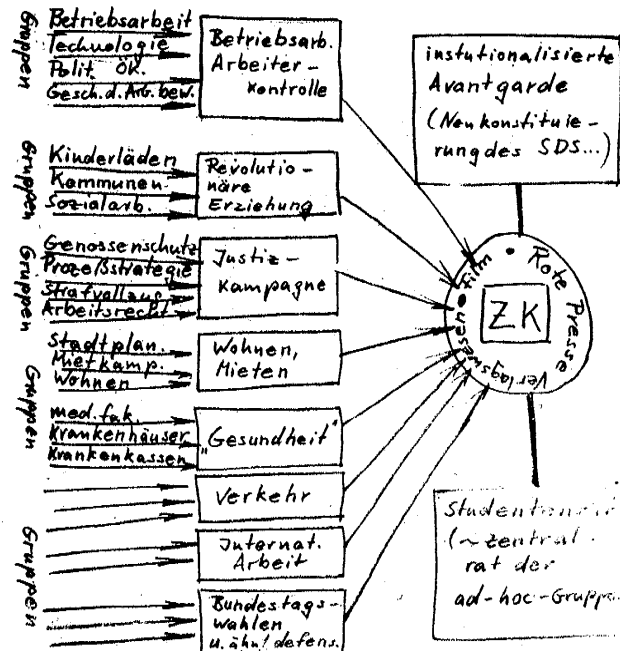 Gruppen
Betriebsarbeit
Technologie
Polit. Ök.
Gesch. d. Arb. bew.
Betriebsarb.
Arbeiter-
kontrolle
Gruppen
Kinderläden
Kommunen
Sozialarb.
Revolutio-
näre
Erziehung
Gruppen
Genossenschutz
Prozeßstrategie
Strafvollzug
Arbeitsrecht
Justiz-
Kampagne
Gruppen
Stadtplan.
Mietkamp.
Wohnen
Wohnen,
Mieten
med. fak.
Krankenhäuser
Krankenkassen
„Gesundheit"
Verkehr
Gruppen
Internat.
Arbeit
Bundestags-
wahlen
u. ähnl defens.
institutionalisierte
Avantgarde
(Neukonstituie-
rung des SDS...)
film • Rote Presse
Verlagswesen •
ZK
(~zentral
rat der
ad-hoc-Gruppe